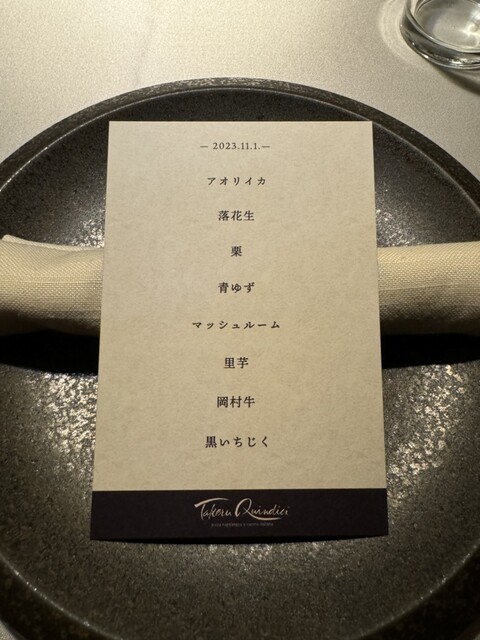 — 2023.11.1.—
アオリイカ
落花生
栗
青ゆず
マッシュルーム
里芋
岡村牛
黒いちじく
Takeru Quindici